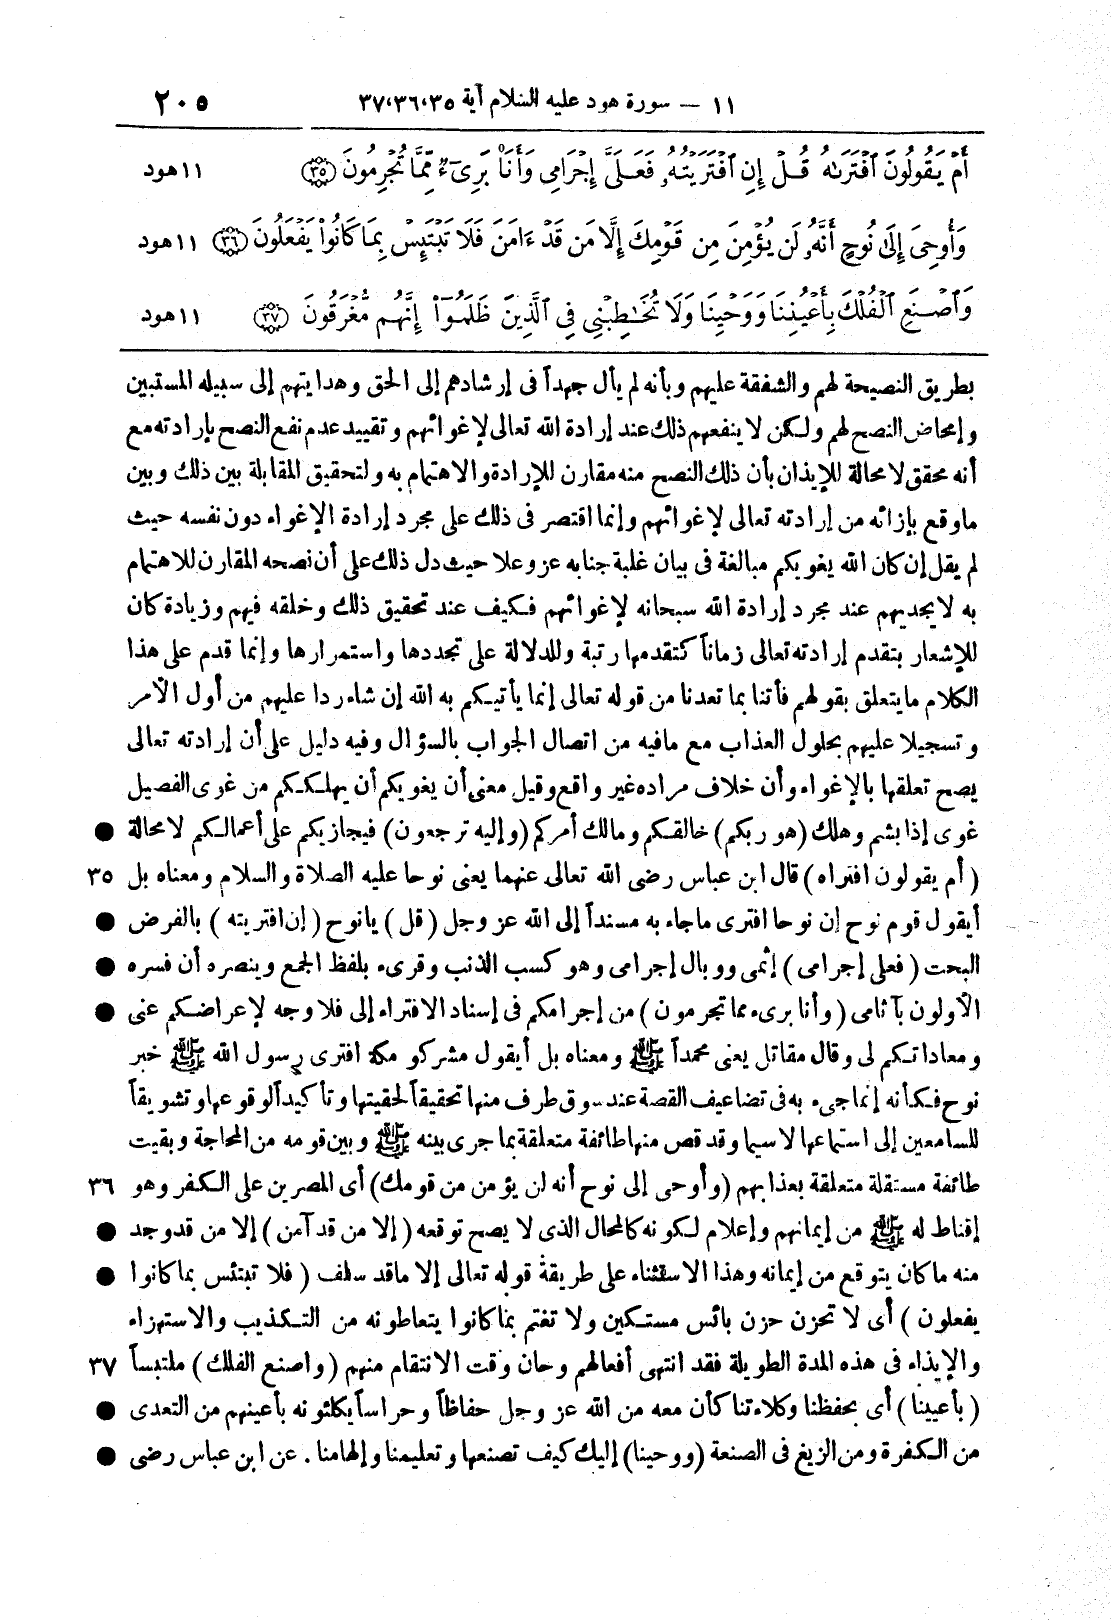 ١١ — سورة هود عليه السلام آية ٣٥،٣٦،٣٧ ٢٠٥
أَمْ يَقُولُونَ ٱفْتَرَىٰهُ قُلْ إِنِ ٱفْتَرَيْتُهُۥ فَعَلَىَّ إِجْرَامِى وَأَنَا۠ بَرِىٓءٌ مِّمَّا تُجْرِمُونَ ٣٥ ١١هود
وَأُوحِىَ إِلَىٰ نُوحٍ أَنَّهُۥ لَن يُؤْمِنَ مِن قَوْمِكَ إِلَّا مَن قَدْ ءَامَنَ فَلَا تَبْتَئِسْ بِمَا كَانُوا۟ يَفْعَلُونَ ٣٦ ١١هود
وَٱصْنَعِ ٱلْفُلْكَ بِأَعْيُنِنَا وَوَحْيِنَا وَلَا تُخَـٰطِبْنِى فِى ٱلَّذِينَ ظَلَمُوٓا۟ إِنَّهُم مُّغْرَقُونَ ٣٧ ١١هود
بطريق النصيحة لهم والشفقة عليهم وبأنه لم يأل جهداً فى إرشادهم إلى الحق وهدايتهم إلى سبيله المستبين
وإمحاض النصح لهم ولكن لا ينفعهم ذلك عند إرادة الله تعالى لإغوائهم وتقييد عدم نفع النصح بإرادته مع
أنه محقق لا محالة للإيذان بأن ذلك النصح منه مقارن للإرادة والاهتمام به ولتحقيق المقابلة بين ذلك وبين
ماوقع بإزائه من إرادته تعالى لإغوائهم وإنما اقتصر فى ذلك على مجرد إرادة الإغواء دون نفسه حيث
لم يقل إن كان الله يغويكم مبالغة فى بيان غلبة جنابه عز وعلا حيث دل ذلك على أن نصحه المقارن للاهتمام
به لا يجديهم عند مجرد إرادة الله سبحانه لإغوائهم فكيف عند تحقيق ذلك وخلقه فيهم وزيادة كان
للإشعار بتقدم إرادته تعالى زماناً كتقدمها رتبة وللدلالة على تجددها واستمرارها وإنما قدم على هذا
الكلام مايتعلق بقولهم فأتنا بما تعدنا من قوله تعالى إنما يأتيكم به الله إن شاء ردا عليهم من أول الأمر
وتسجيلا عليهم بحلول العذاب مع مافيه من اتصال الجواب بالسؤال وفيه دليل على أن إرادته تعالى
يصح تعلقها بالإغواء وأن خلاف مراده غير واقع وقيل معنى أن يغويكم أن يهلككم من غوى الفصيل
غوى إذا بشم وهلك (هو ربكم) خالقكم ومالك أمركم (وإليه ترجعون) فيجازيكم على أعمالكم لا محالة ●
(أم يقولون افتراه) قال ابن عباس رضى الله تعالى عنهما يعنى نوحا عليه الصلاة والسلام ومعناه بل ٣٥
أيقول قوم نوح إن نوحا افترى ماجاء به مسنداً إلى الله عز وجل (قل) يانوح (إن افتريته) بالفرض ●
البحت (فعلى إجرامى) إثمى ووبال إجرامى وهو كسب الذنب وقرىء بلفظ الجمع وينصره أن فسره ●
الأولون بآثامى (وأنا برىء مما تجرمون) من إجرامكم فى إسناد الافتراء إلى فلا وجه لإعراضكم عنى ●
ومعاداتكم لى وقال مقاتل يعنى محمداً ﷺ ومعناه بل أيقول مشركو مكة افترى رسول الله ﷺ خبر
نوح فكأنه إنما جىء به فى تضاعيف القصة عند سوق طرف منها تحقيقاً لحقيتها وتأكيداً لوقوعها وتشويقاً
للسامعين إلى استماعها لا سيما وقد قص منها طائفة متعلقة بما جرى بينه ﷺ وبين قومه من المحاجة وبقيت
طائفة مستقلة متعلقة بعذابهم (وأوحى إلى نوح أنه لن يؤمن من قومك) أى المصرين على الكفر وهو ٣٦
إقناط له ﷺ من إيمانهم وإعلام لكونه كالمحال الذى لا يصح توقعه (إلا من قد آمن) إلا من قد وجد ●
منه ما كان يتوقع من إيمانه وهذا الاستثناء على طريقة قوله تعالى إلا ماقد سلف (فلا تبتئس بما كانوا ●
يفعلون) أى لا تحزن حزن بائس مستكين ولا تغتم بما كانوا يتعاطونه من التكذيب والاستهزاء
والإيذاء فى هذه المدة الطويلة فقد انتهى أفعالهم وحان وقت الانتقام منهم (واصنع الفلك) ملتبساً ٣٧
(بأعيننا) أى بحفظنا وكلاءتنا كأن معه من الله عز وجل حفاظاً وحراساً يكلئونه بأعينهم من التعدى ●
من الكفرة ومن الزيغ فى الصنعة (ووحينا) إليك كيف تصنعها وتعليمنا وإلهامنا . عن ابن عباس رضى ●